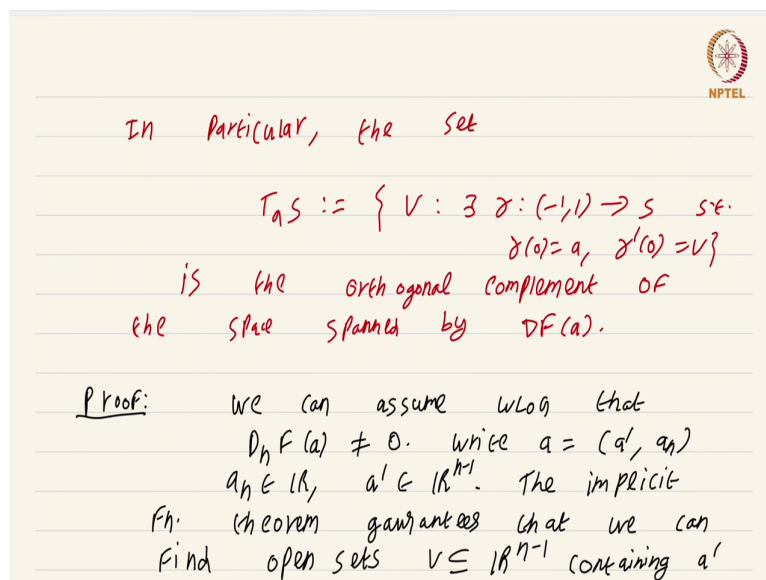 NPTEL
In Particular, the set
TₐS := { V : ∃ γ : (-1,1) → S s.t.
γ(0) = a, γ'(0) = V}
is the orthogonal complement of
the space spanned by DF(a).
Proof: We can assume WLOG that
DₙF(a) ≠ 0. Write a = (a', aₙ)
aₙ ∈ ℝ, a' ∈ ℝⁿ⁻¹. The implicit
Fn. theorem gaurantees that we can
Find open sets V ⊆ ℝⁿ⁻¹ containing a'